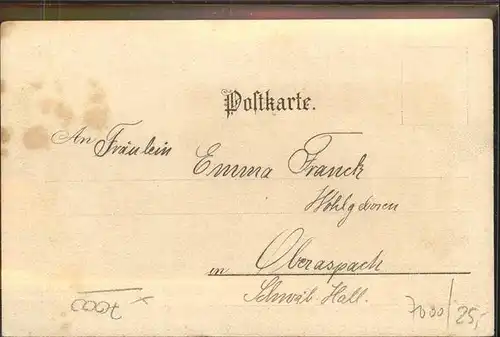 Postkarte.
An Fräulein
Emma Franck
Wohlgeboren
in Oberaspach
Schwäb. Hall.
7000 7000/25,-